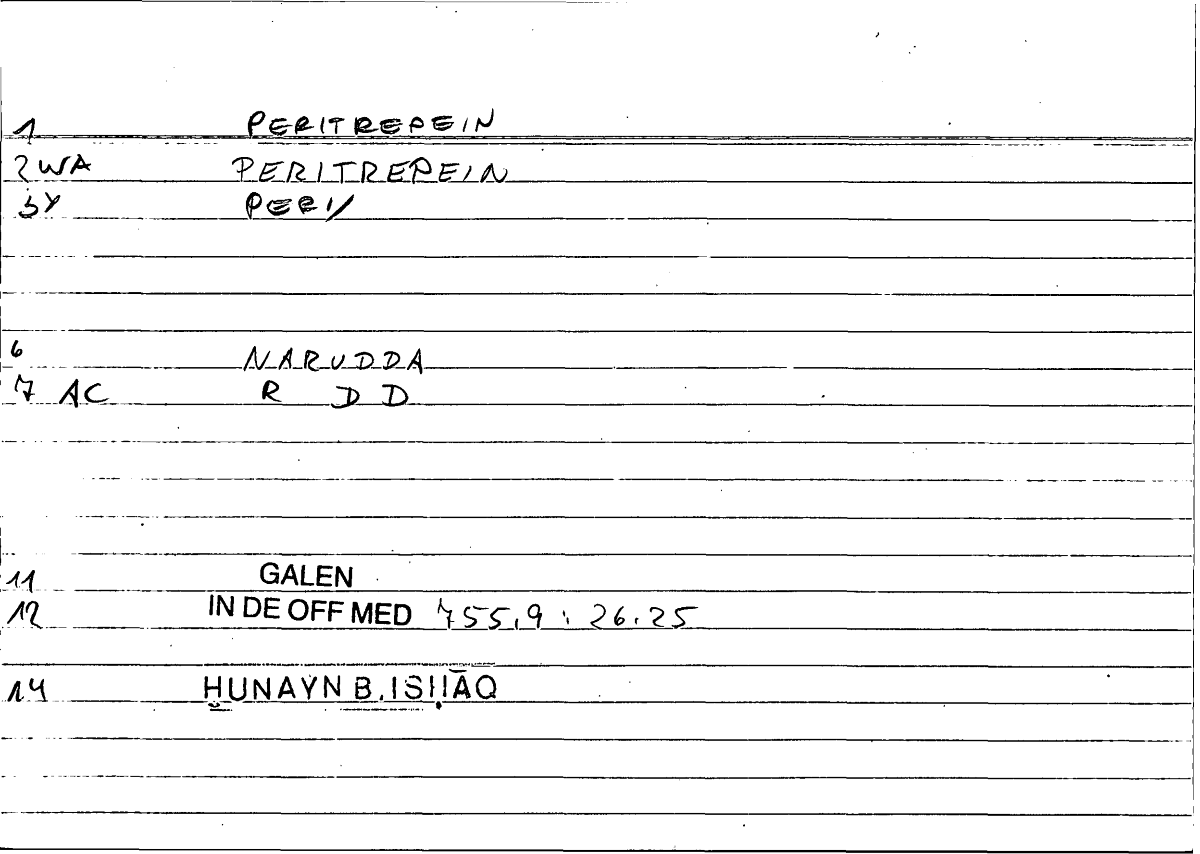 1 PERITREPEIN
2 WA PERITREPEIN
3Y PERI/
6 NARUDDA
7 AC R D D
11 GALEN
12 IN DE OFF MED 755,9 : 26.25
14 ḪUNAYN B. ISḤĀQ